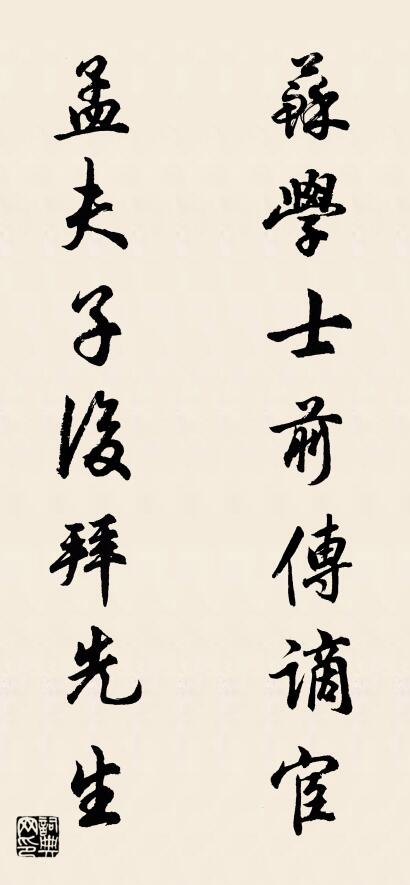 蘇學士前傳謫宦
孟夫子後拜先生
詞典網印